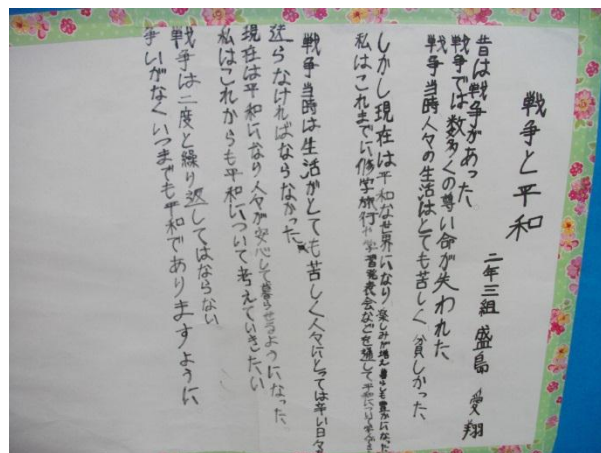 戦争と平和
二年三組 盛島 愛翔
昔は戦争があった。
戦争では数多くの尊い命が失われた
戦争当時人々の生活はとても苦しく貧しかった、
しかし現在は平和な世界になり楽しみが増え暮らしも豊かになった
私はこれまでに修学旅行や学習発表会などを通して平和について学んだ
戦争当時は生活がとても苦しく人々にとっては辛い日々を
送らなければならなかった
現在は平和になり人々が安心して暮らせるようになった、
私はこれからも平和について考えていきたい
戦争は二度と繰り返してはならない
争いがなくいつまでも平和でありますように